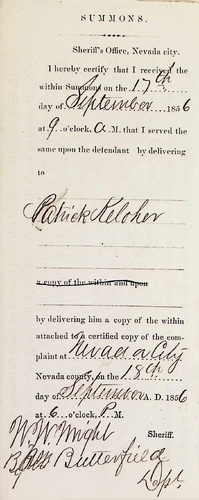 SUMMONS.
Sheriff's Office, Nevada city.
I hereby certify that I received the
within Summons on the 17th
day of September 1856
at 9 o'clock, A.M. that I served the
same upon the defendant by delivering
to
Patrick Keloher
a copy of the within and upon
by delivering him a copy of the within
attached to a certified copy of the com-
plaint at Nevada City
Nevada county, on the 18th
day of September A. D. 1856
at 6 o'clock, P M.
W. W. Wright Sheriff.
Butterfield
Dept.